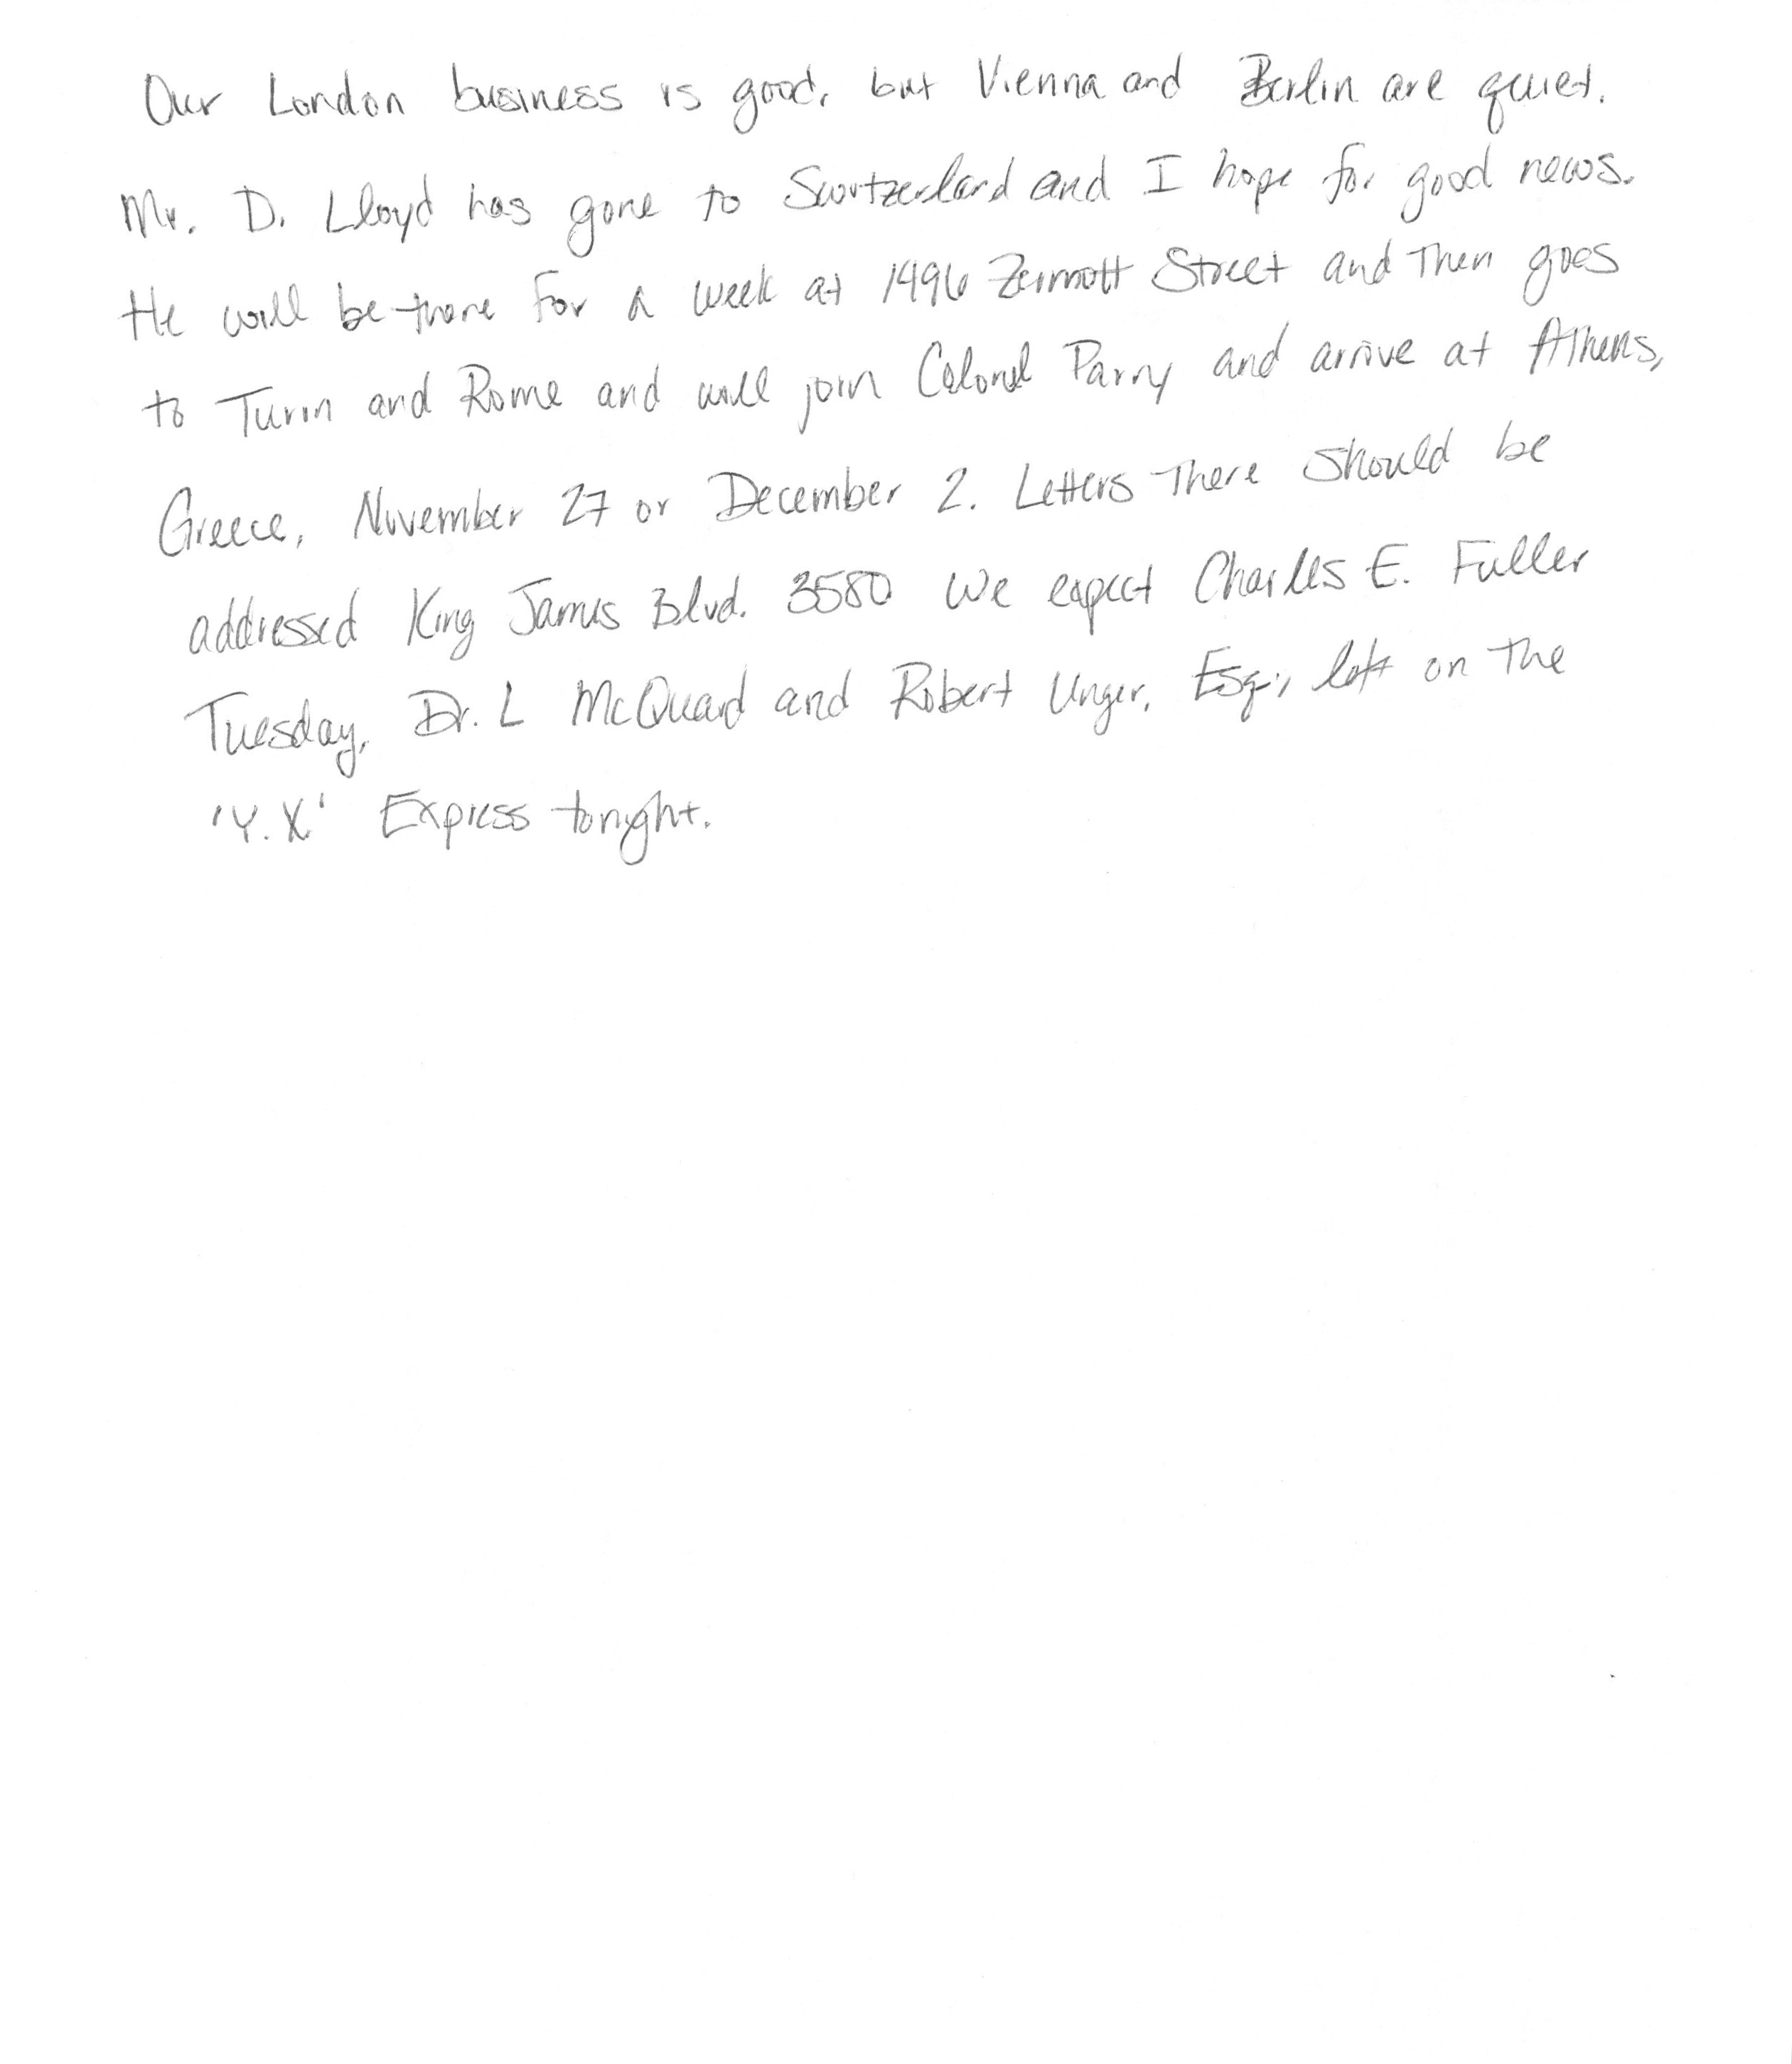 Our London business is good, but Vienna and Berlin are quiet.
Mr. D. Lloyd has gone to Switzerland and I hope for good news.
He will be there for a week at 1496 Zermott Street and then goes
to Turin and Rome and will join Colonel Parry and arrive at Athens,
Greece, November 27 or December 2. Letters there should be
addressed King James Blvd. 3580 We expect Charles E. Fuller
Tuesday. Dr. L McQuaid and Robert Unger, Esq., left on the
'Y.X.' Express tonight.